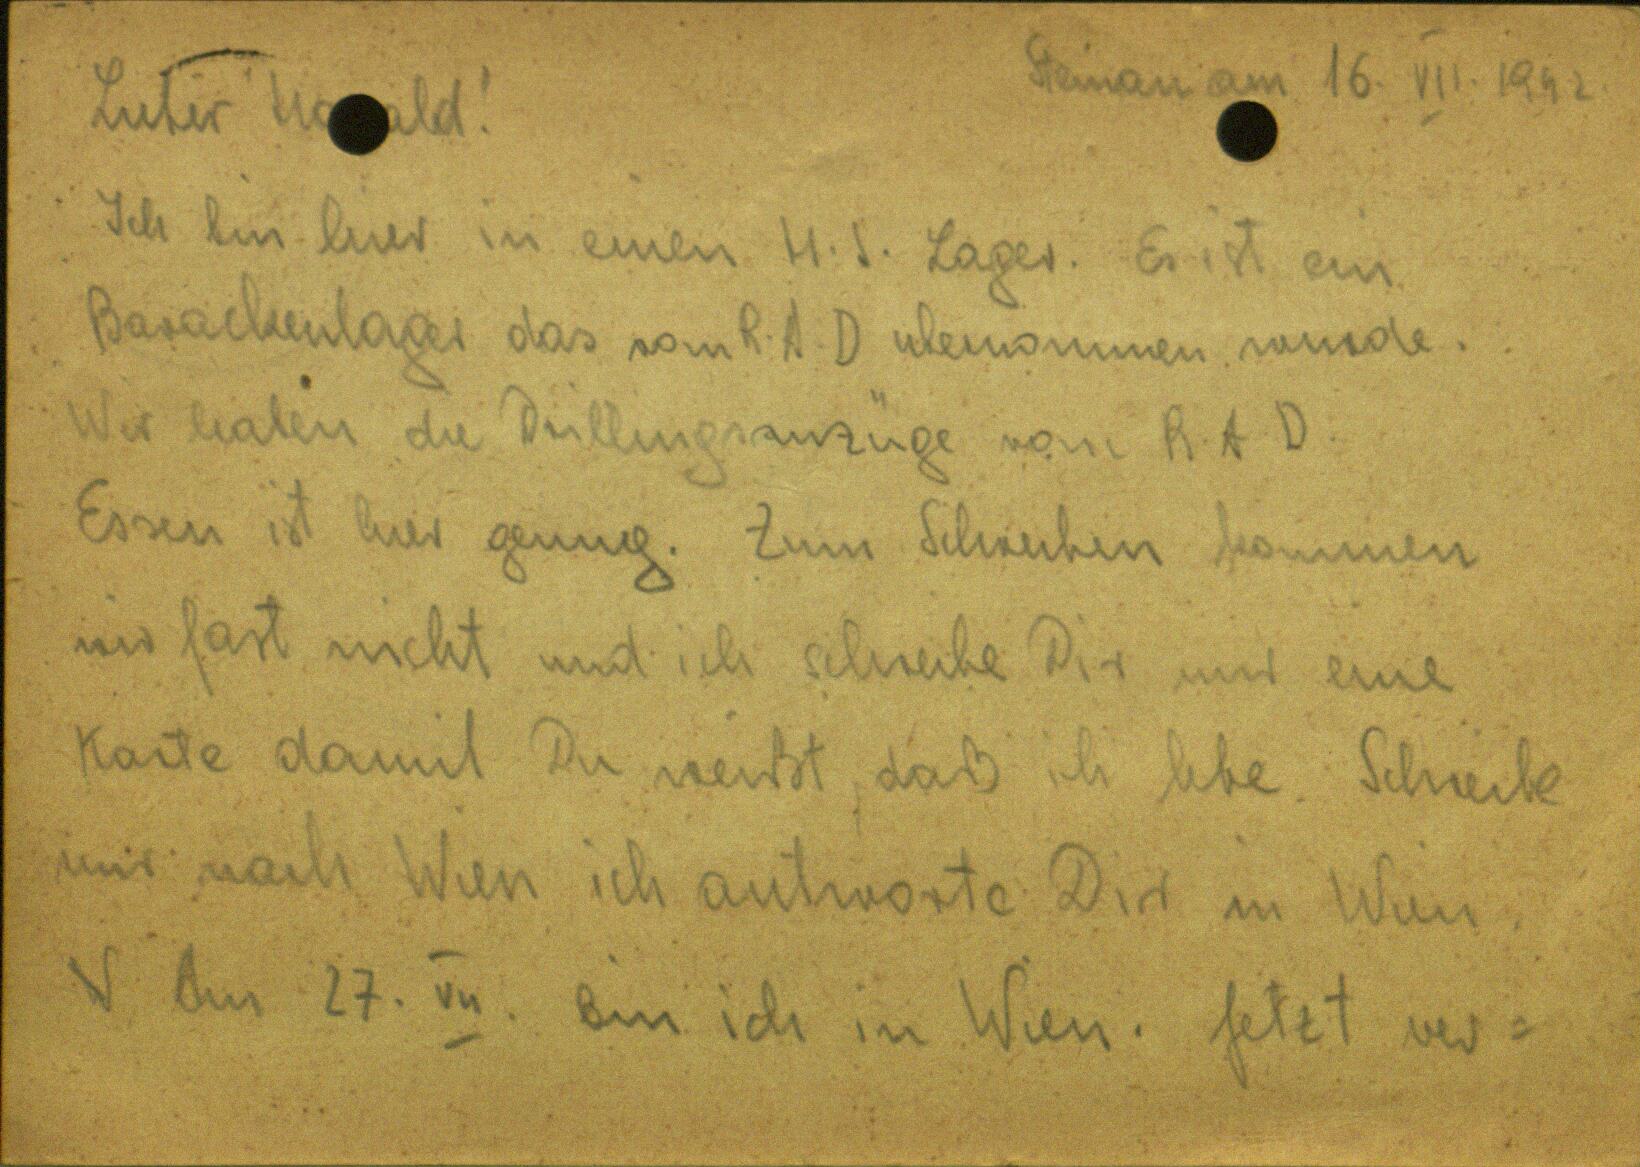 Steinau am 16. VII. 1942.
Lieber Harald!
Ich bin hier in einen H.J. Lager. Es ist ein
Barackenlager das vom R.A.D übernommen wurde.
Wir haben die Drillingsanzüge vom R.A.D.
Essen ist hier genug. Zum Schreiben kommen
wir fast nicht und ich schreibe Dir nur eine
Karte damit Du weißt, daß ich lebe. Schreibe
mir nach Wien ich antworte Dir in Wien.
Am 27. VII. bin ich in Wien. Jetzt ver=